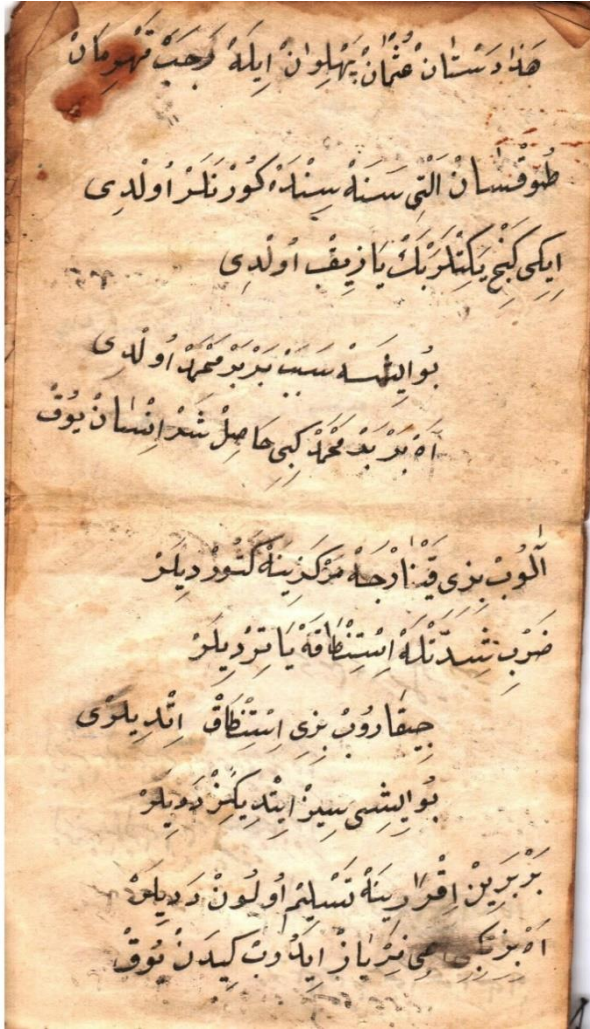 هَذَا دَسْتَانْ عُثْمَانْ پَهْلِوَانْ اِيلَهْ رَجَبْ قَهْرِمَانْ
طُوقْسَانْ اَلْتِى سَنَهْ سِنْدَهْ كُورْنَلَرْ اُولْدِى
اِيكِى كَنْج يَكِتْلَرْ پَكْ يَازِيقْ اُولْدِى
بُو اِيشَهْ سَبَبْ بَرْبَرْ مَحْمَدْ اُولْدِى
آهْ بَرْبَرْ مَحْمَدْ كِبِى حَاصِلْ شَرْ اِنْسَانْ يُوقْ
آلُوبْ بِزِى مَرْكَزِينَهْ كَتُورْدِيلَرْ
ضَرْبِ شِدَّتْلَهْ اِسْتِنْطَاقَهْ يَاتِرْدِيلَرْ
چِيقَارُوبْ بِزِى اِسْتِنْطَاقْ اِتْدِيلَرْى
بُو اِيشِى سِيزْ اِيتْدِيكِزْ دَدِيلَرْ
بَرْبَرِينْ اِقْرَارِينَهْ تَسْلِيمْ اُولُونْ دَدِيلَرْ
آهْ بِزِيَازْ اِيدُوبْ كِيدَنْ يُوقْ